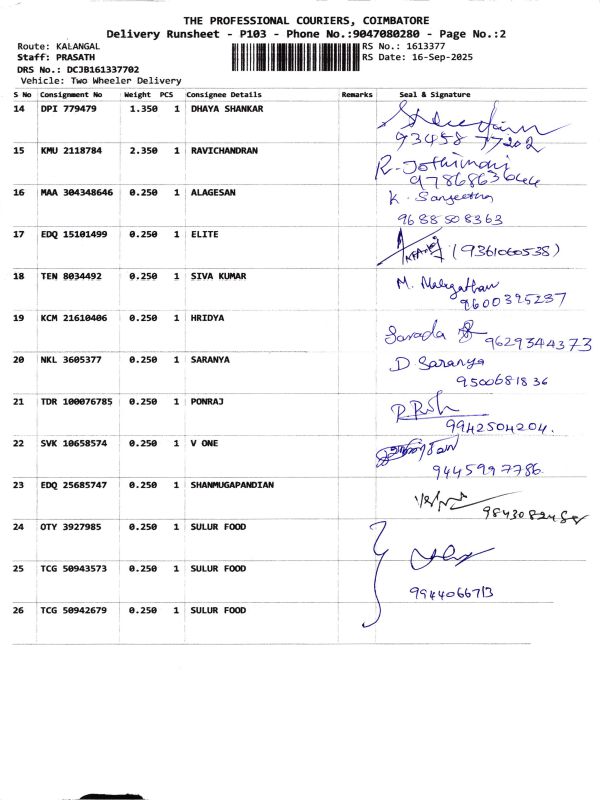 THE PROFESSIONAL COURIERS, COIMBATORE
Delivery Runsheet - P103 - Phone No.:9047080280 - Page No.:2
Route: KALANGAL
RS No.: 1613377
Staff: PRASATH
RS Date: 16-Sep-2025
DRS No.: DCJB161337702
Vehicle: Two Wheeler Delivery
S No Consignment No Weight PCS Consignee Details Remarks Seal & Signature
14 DPI 779479 1.350 1 DHAYA SHANKAR
93458 77202
15 KMU 2118784 2.350 1 RAVICHANDRAN
R. Jothimani
16 MAA 304348646 0.250 1 ALAGESAN K. Sangeetha
9688508363
17 EDQ 15101499 0.250 1 ELITE (9361060538)
18 TEN 8034492 0.250 1 SIVA KUMAR M.
9600395237
19 KCM 21610406 0.250 1 HRIDYA
Sarada 9629344373
20 NKL 3605377 0.250 1 SARANYA D Saranya
9500681836
21 TDR 100076785 0.250 1 PONRAJ
9942504204.
22 SVK 10658574 0.250 1 V ONE
9445997786.
23 EDQ 25685747 0.250 1 SHANMUGAPANDIAN
9843082488
24 OTY 3927985 0.250 1 SULUR FOOD
25 TCG 50943573 0.250 1 SULUR FOOD
9944066713
26 TCG 50942679 0.250 1 SULUR FOOD